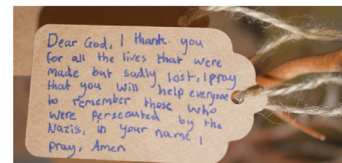 Dear God, I thank you
for all the lives that were
made but sadly lost, I pray
that you will help everyone
to remember those who
were persecuted by the
Nazis, in your name I
pray, Amen